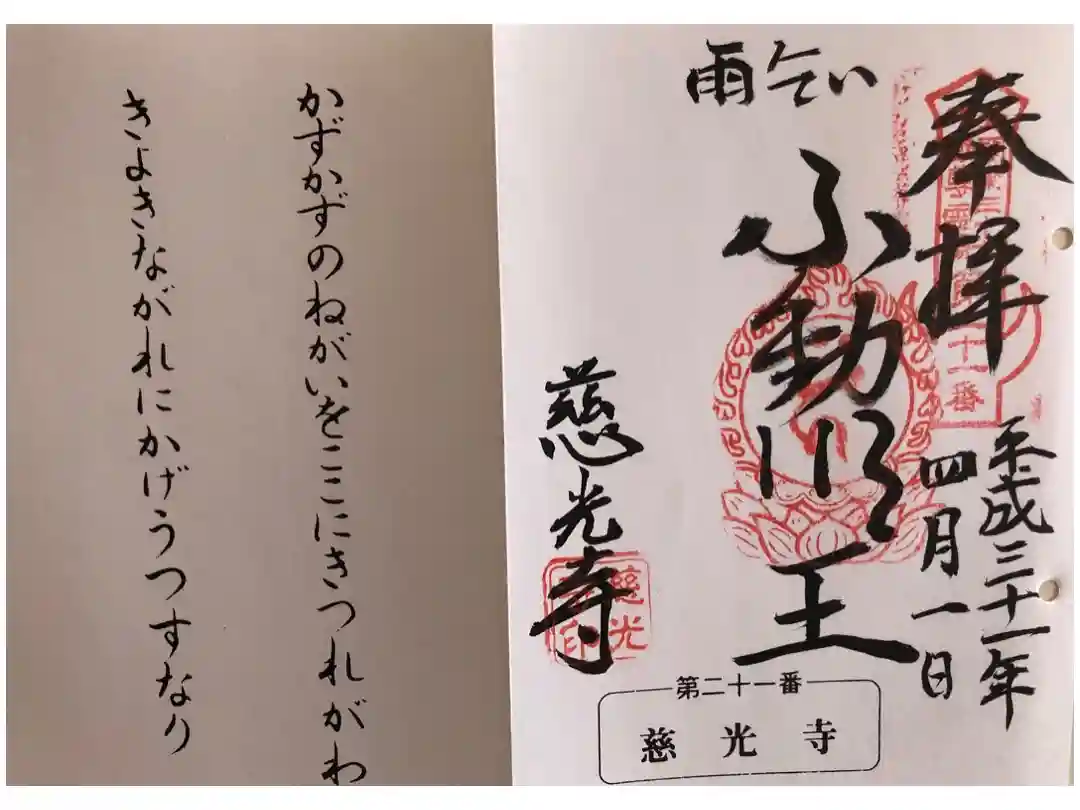 奉拝
平成三十一年
四月一日
雨乞い
不動明王
慈光寺
慈光寺印
十一番
第二十一番
慈光寺
かずかずのねがいをここにきつれがわ
きよきながれにかげうつすなり